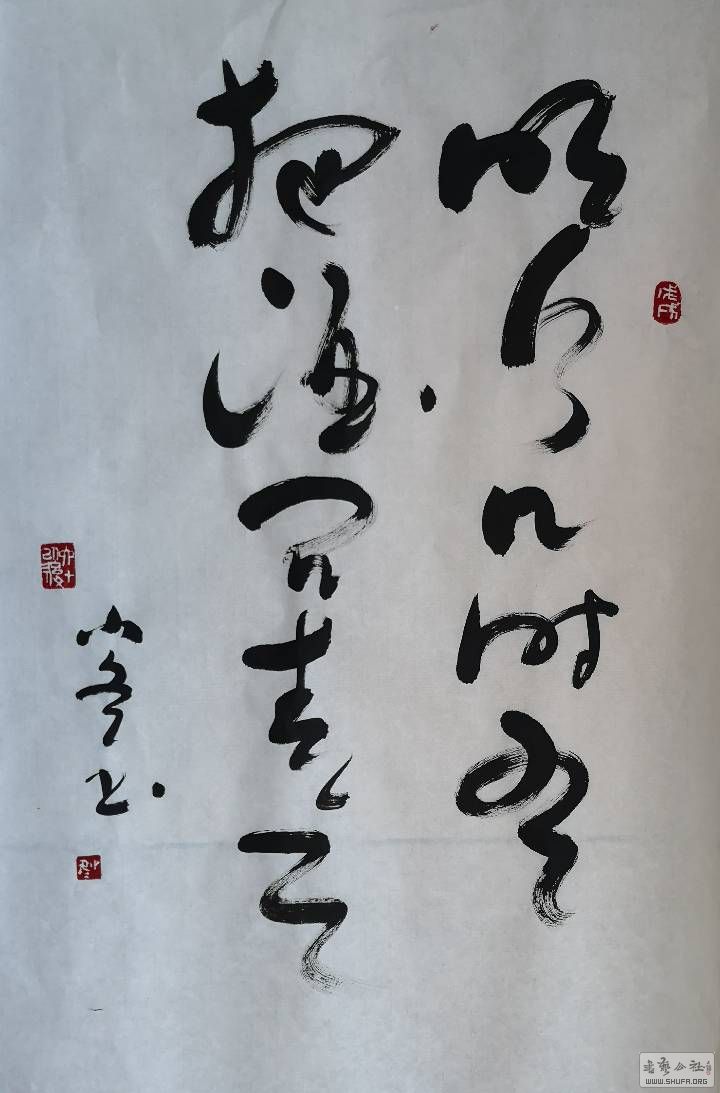 明月几时有
把酒问青天
小冬书
书艺公社
WWW.SHUFA.ORG